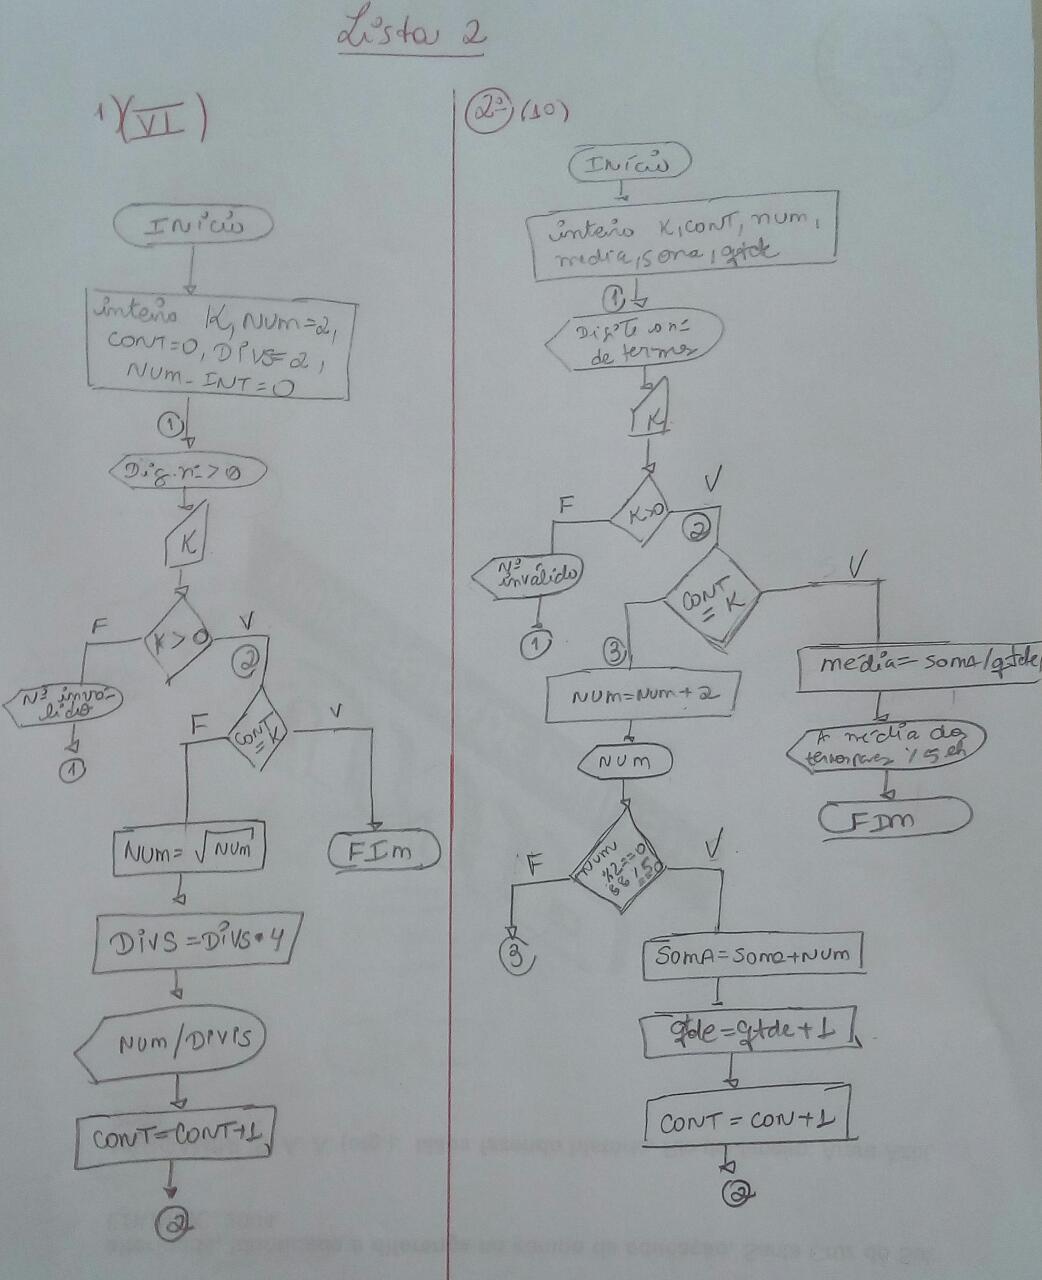 Lista 2
1) (VI)
INÍCIO
inteiro K, NUM=2,
CONT=0, DIVS=2,
NUM_INT=0
1
Dig. nº >0
K
K > 0
F
V
Nº invá-
lido
1
2
CONT
=
K
F
V
FIM
NUM = √NUM
DIVS = DIVS*4
NUM/DIVIS
CONT=CONT+1
2
2ª (10)
INÍCIO
inteiro K, CONT, num,
media, soma, qtde
1
Digite o nº
de termos
K
K>0
F
V
Nº
inválido
1
2
CONT
=
K
V
media= SOMA/qtde
A média dos
termos pares %5 eh
FIM
3
NUM=NUM+2
NUM
NUM
%2==0
&& %5
==0
F
V
3
SOMA=Soma+NUM
qtde=qtde+1
CONT = CON+1
2